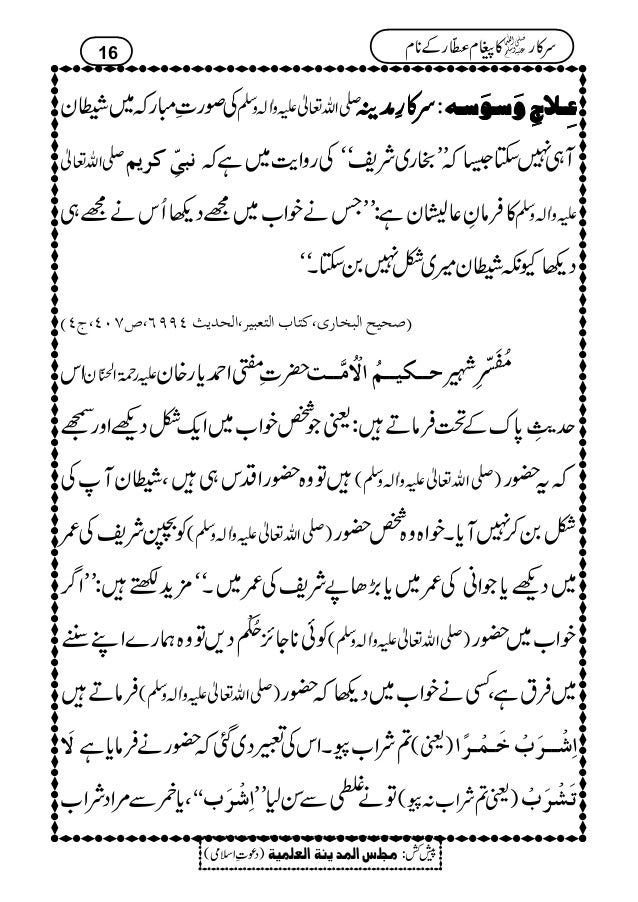 سرکار ﷺ کا پیغام عطّار کے نام
16
عِلاجِ وَسوَسه: سرکارِ مدینہ صلی اللہ تعالیٰ علیہ والہ وسلم کی صورتِ مبارکہ میں شیطان
آ ہی نہیں سکتا جیسا کہ ’’بخاری شریف‘‘ کی روایت میں ہے کہ نبیِّ کریم صلی اللہ تعالیٰ
علیہ والہ وسلم کا فرمانِ عالیشان ہے: ’’جس نے خواب میں مجھے دیکھا اُس نے مجھے ہی
دیکھا کیونکہ شیطان میری شکل نہیں بن سکتا۔‘‘
(صحیح البخاری، کتاب التعبیر، الحدیث ٦٩٩٤، ص٤٠٧، ج٤)
مُفَسِّرِ شہیر حکیمُ الْاُمَّت حضرتِ مفتی احمد یار خان علیہ رحمۃ الحنّان اس
حدیثِ پاک کے تحت فرماتے ہیں: یعنی جو شخص خواب میں ایک شکل دیکھے اور سمجھے
کہ یہ حضور (صلی اللہ تعالیٰ علیہ والہ وسلم) ہیں تو وہ حضورِ اقدس ہی ہیں، شیطان آپ کی
شکل بن کر نہیں آیا۔ خواہ وہ شخص حضور (صلی اللہ تعالیٰ علیہ والہ وسلم) کو بچپن شریف کی عمر
میں دیکھے یا جوانی کی عمر میں یا بڑھاپے شریف کی عمر میں۔‘‘ مزید لکھتے ہیں: ’’اگر
خواب میں حضور (صلی اللہ تعالیٰ علیہ والہ وسلم) کوئی ناجائز حُکْم دیں تو وہ ہمارے اپنے سننے
میں فرق ہے، کسی نے خواب میں دیکھا کہ حضور (صلی اللہ تعالیٰ علیہ والہ وسلم) فرماتے ہیں
اِشْرَبْ خَمْرًا (یعنی) تم شراب پیو۔ اس کی تعبیر دی گئی کہ حضور نے فرمایا ہے لَا
تَشْرَبْ (یعنی تم شراب نہ پیو) تو نے غلطی سے سن لیا ’’اِشْرَب‘‘، یا خمر سے مراد شراب
پیش کش: مجلس المدینة العلمیة (دعوتِ اسلامی)